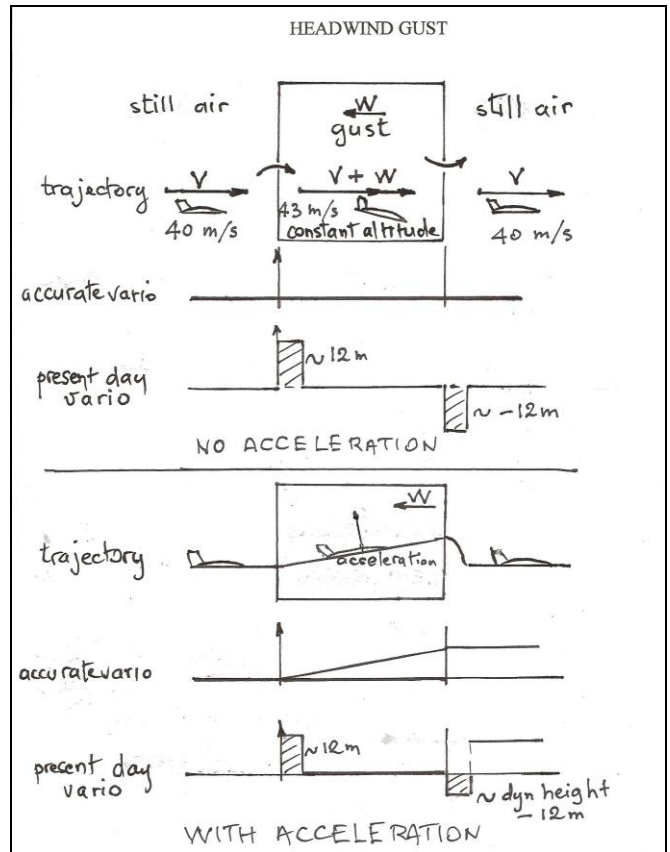 HEADWIND GUST
still air
W
gust
still air
trajectory
V
40 m/s
V + W
43 m/s
constant altitude
V
40 m/s
accurate vario
present day
vario
~ 12 m
~ -12 m
NO ACCELERATION
trajectory
W
acceleration
accurate vario
present day
vario
~ 12 m
~ dyn height
- 12 m
WITH ACCELERATION